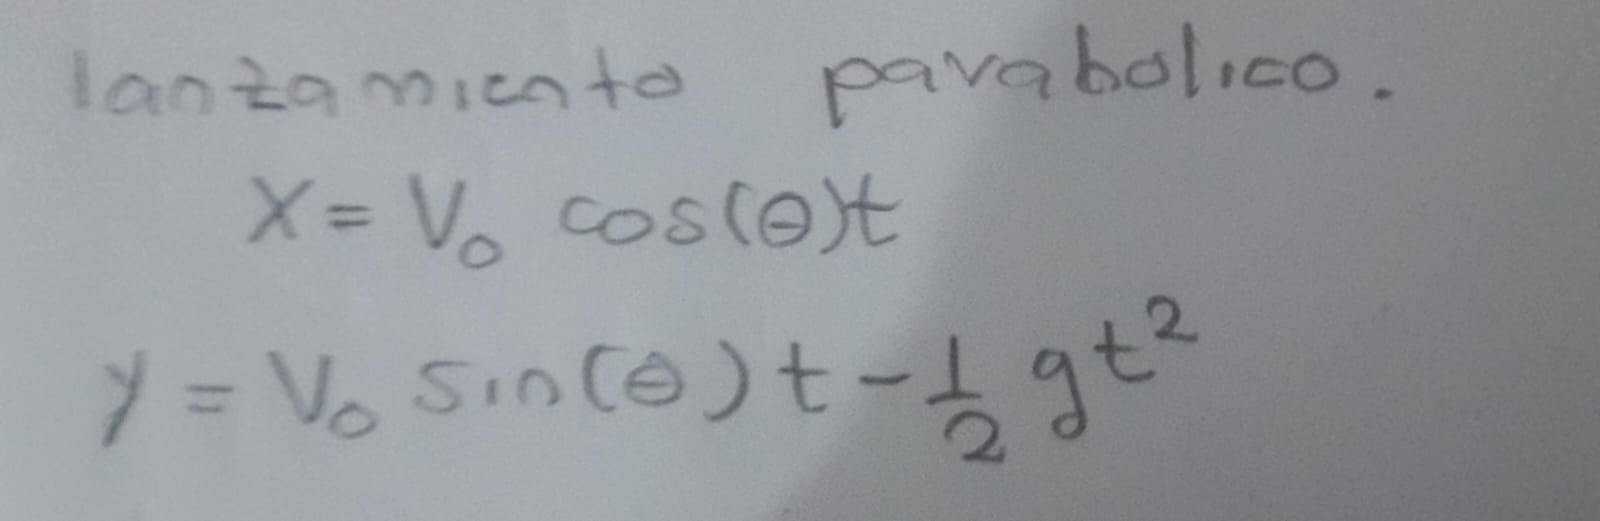 lanzamiento parabolico.
X = V₀ cos(θ)t
y = V₀ sin(θ)t - ½ gt²